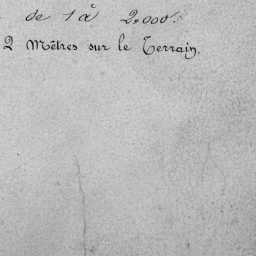 de 1 à 2,000.
2 Mètres sur le Terrain.